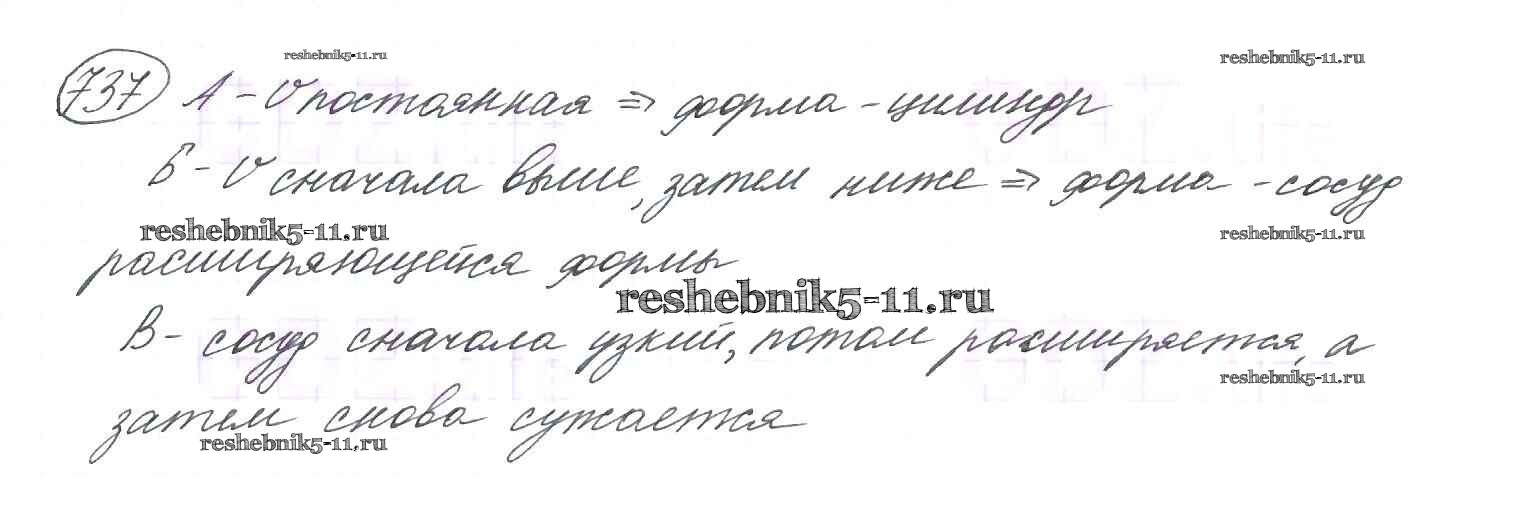 reshebnik5-11.ru
reshebnik5-11.ru
737 А - υ постоянная => форма - цилиндр
Б - υ сначала выше, затем ниже => форма - сосуд
reshebnik5-11.ru
reshebnik5-11.ru
расширяющейся формы
reshebnik5-11.ru
В - сосуд сначала узкий, потом расширяется, а
reshebnik5-11.ru
затем снова сужается
reshebnik5-11.ru